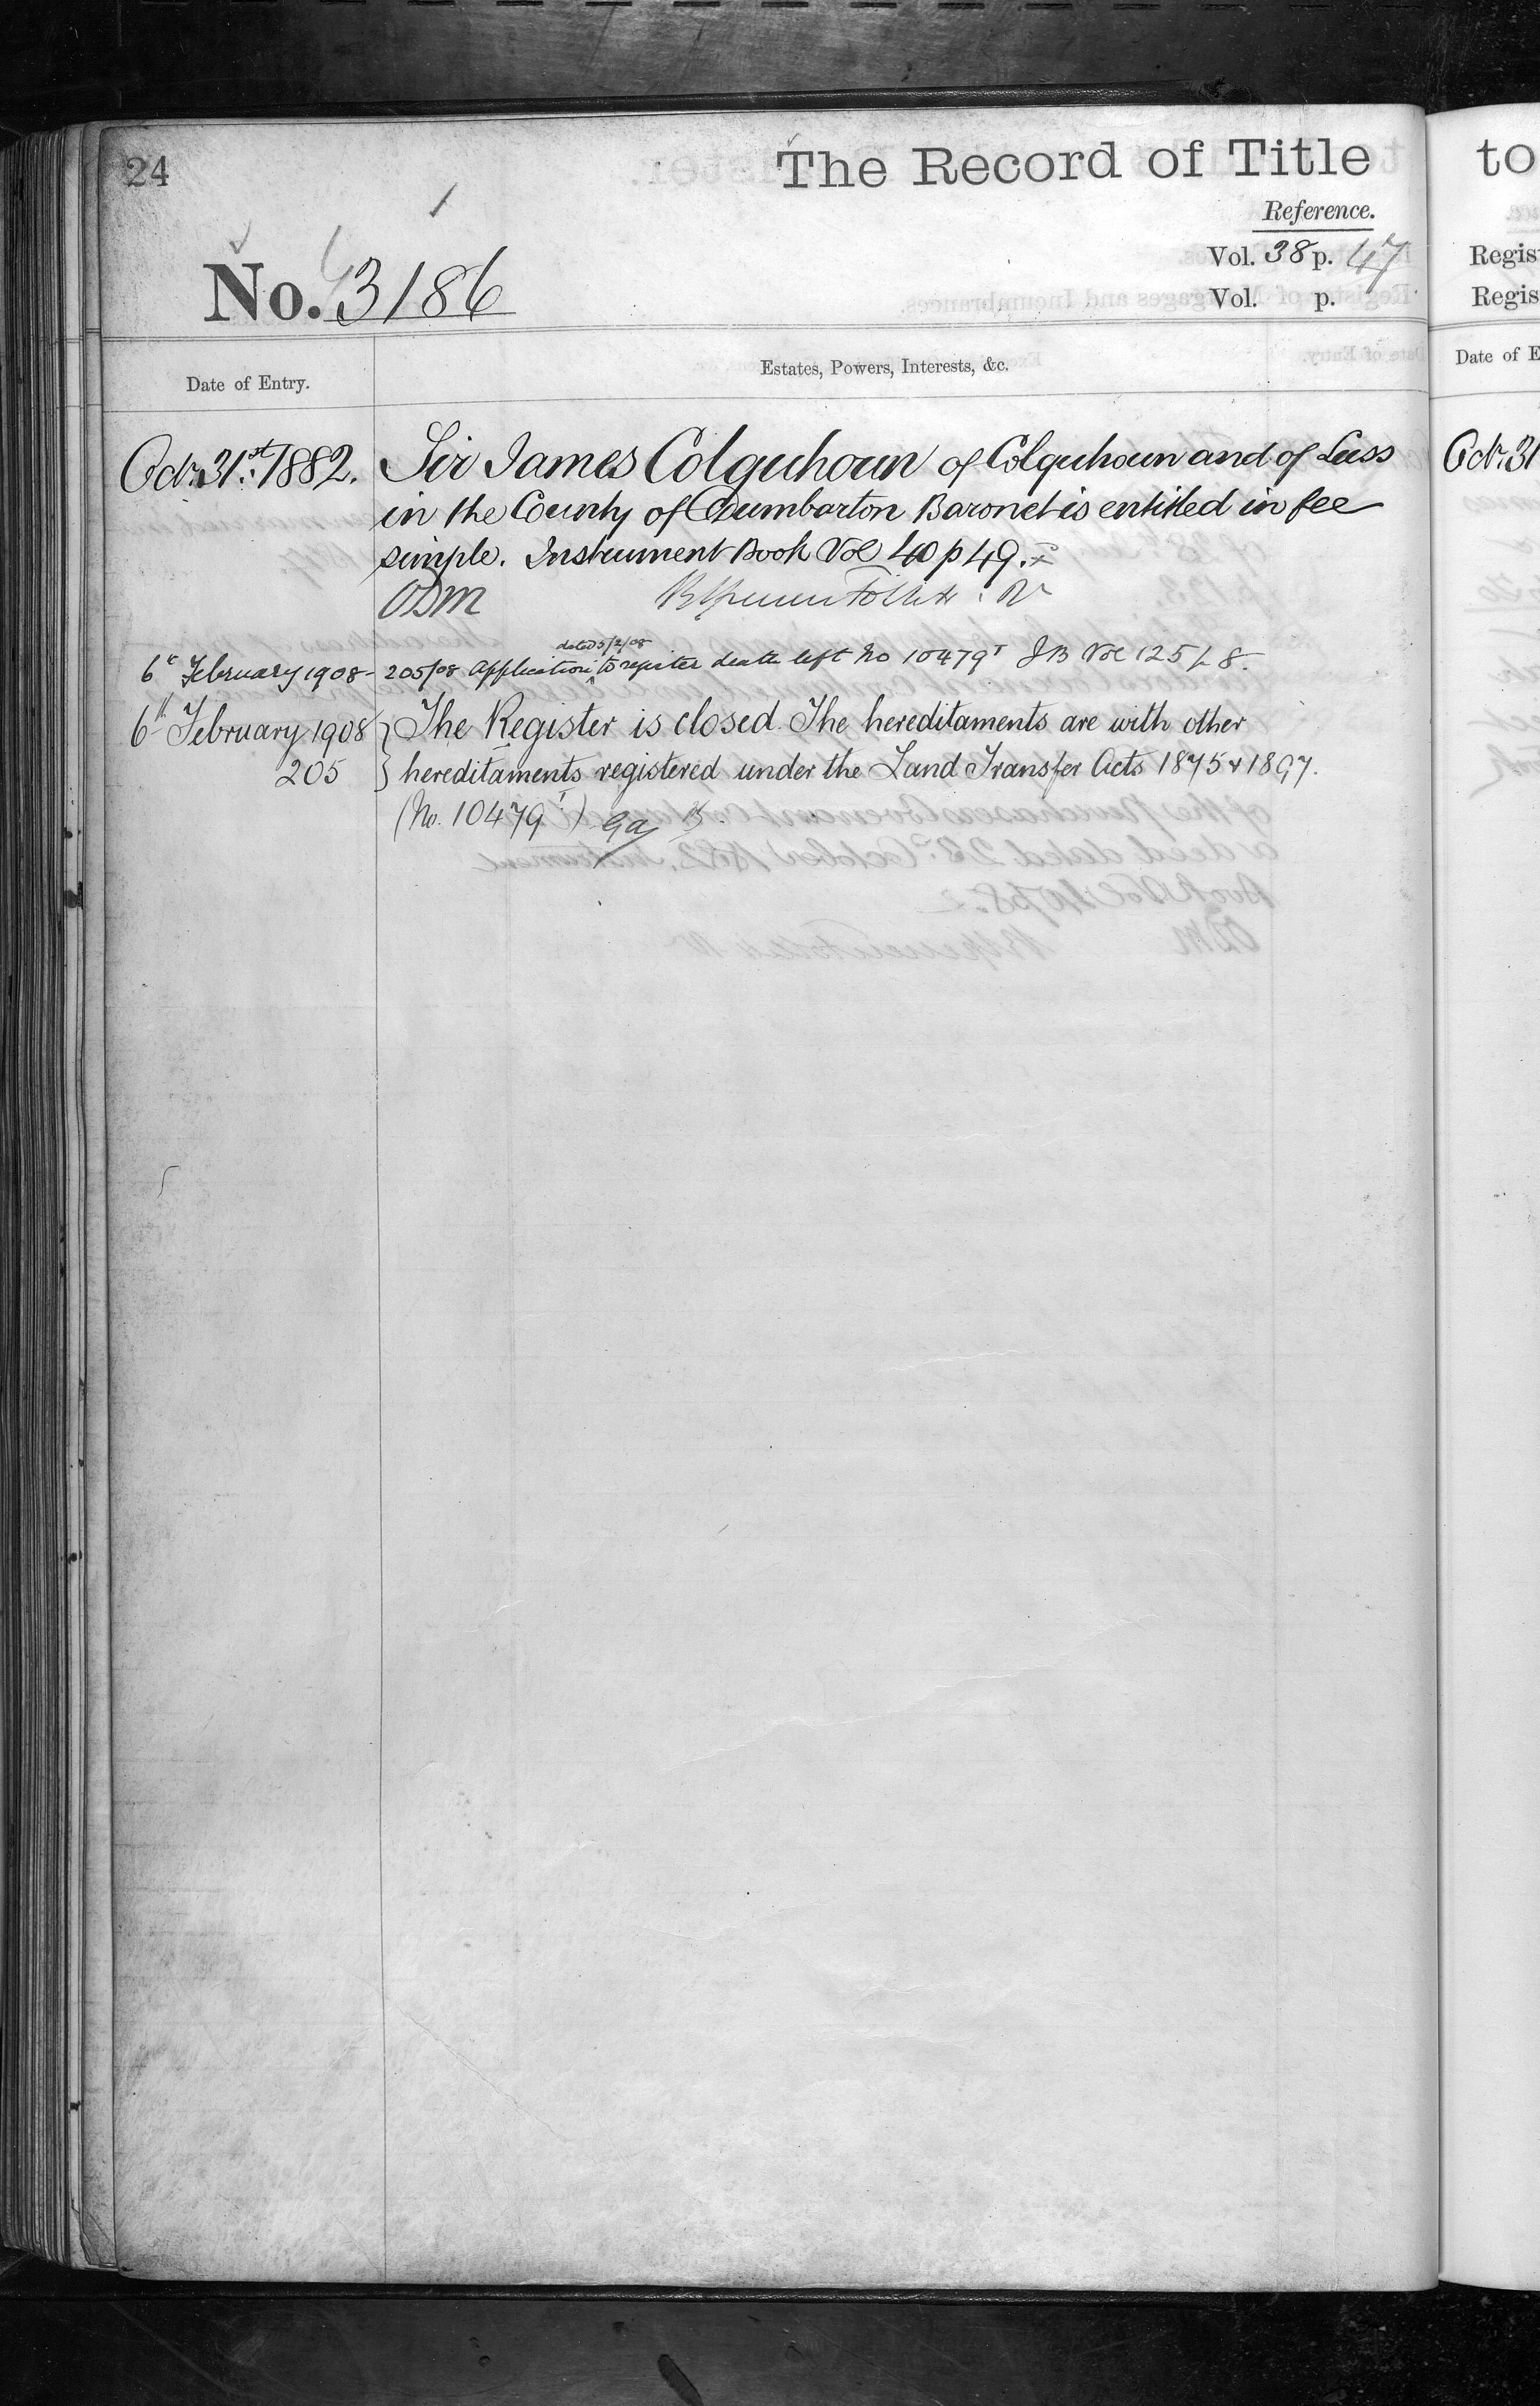 24
The Record of Title
Reference.
Vol. 38 p. 47
Vol. p.
No. 3186
Date of Entry.
Estates, Powers, Interests, &c.
Octr. 31st. 1882.
Sir James Colquhoun of Colquhoun and of Luss
in the County of Dumbarton Baronet is entitled in fee
simple. Instrument Book Vol 40 p 49.
ODM
6th February 1908
205/08 Application dated 5/2/08 to register death left No 10479T IB Vol 125 / 8.
6th February 1908
205
The Register is closed. The hereditaments are with other
hereditaments registered under the Land Transfer Acts 1875 & 1897.
(No. 10479T)
to
Regis
Regis
Date of E
Octr. 31